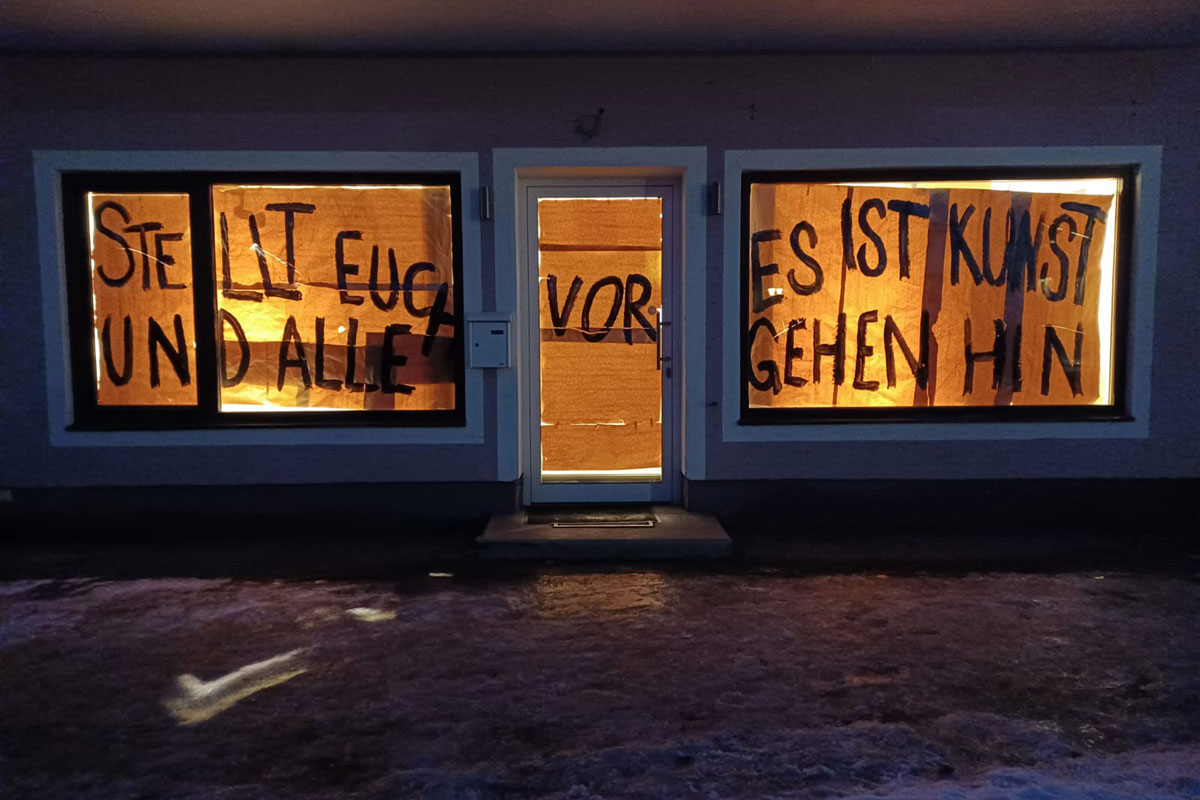 STELLT EUCH VOR ES IST KUNST
UND ALLE GEHEN HIN